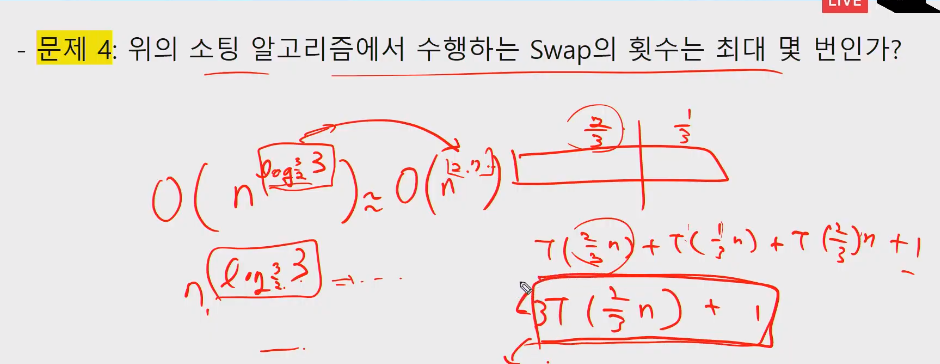 LIVE
- 문제 4: 위의 소팅 알고리즘에서 수행하는 Swap의 횟수는 최대 몇 번인가?
2/3 1/3
O(n^{log_{3/2} 3}) ≈ O(n^{[2.7..]})
T(2/3 n) + T(1/3 n) + T(2/3)n + 1
n^{log_{3/2} 3} ⇒ ...
3T(2/3 n) + 1